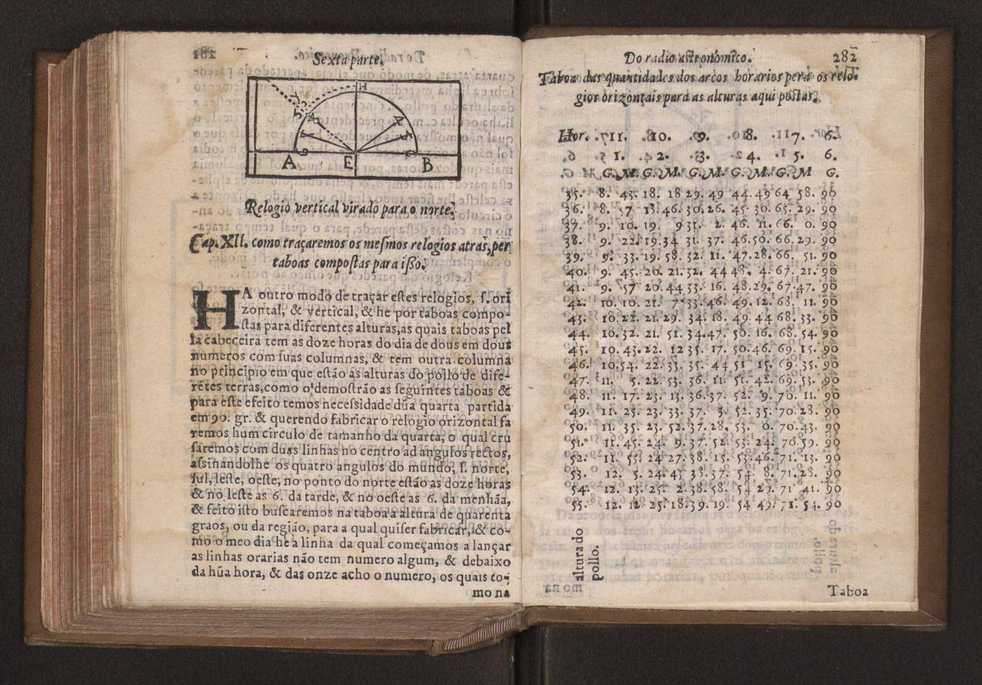 Sexta parte.
A E B
Relogio vertical virado para o norte.
Cap. XII. como traçaremos os meſmos relogios atras, per
taboas compoſtas para iſſo.
HA outro modo de traçar eſtes relogios, ſ. ori
zontal, & vertical, & he por taboas compo-
ſtas para diferentes alturas, as quais taboas pel
la cabeceira tem as doze horas do dia de dous em dous
numeros com ſuas columnas, & tem outra columna
no principio em que eſtão as alturas do pollo de dife-
rẽtes terras, como o demoſtrão as ſeguintes taboas &
para eſte efeito temos neceſsidade dũa quarta partida
em 90. gr. & querendo fabricar o relogio orizontal fa
remos hum circulo de tamanho da quarta, o qual cru
ſaremos com duas linhas no centro ad angulos rectos,
aſsinandolhe os quatro angulos do mundo, ſ. norte,
ſul, leſte, oeſte, no ponto do norte eſtão as doze horas
& no leſte as 6. da tarde, & no oeſte as 6. da menhãa,
& feito iſto buſcaremos na taboa a altura de quarenta
graos, ou da região, para a qual quiſer fabricar, & co-
mo o meo dia he a linha da qual começamos a lançar
as linhas orarias não tem numero algum, & debaixo
da hũa hora, & das onze acho o numero, os quais to-
mo na
Do radio aſtronomico. 282
Taboa das quantidades dos arcos horarios pera os relo-
gios orizontais para as alturas aqui poſtas.
Hor. 11. 10. 9. 8. 7. 6.
1. 2. 3. 4. 5. 6.
G. M. G. M. G. M. G. M. G. M G.
35. 8. 43. 18. 18 29. 49 44. 49 64 58. 90
36. 8. 57 18. 46. 30. 26. 45. 30. 65. 29. 90
37. 9. 10. 19. 9 31. 2. 46. 11. 66. 0. 90
38. 9. 22. 19. 34 31. 37. 46. 50. 66. 29. 90
39. 9. 33. 19. 58. 32. 11. 47. 28. 66. 51. 90
40. 9. 45. 20. 21. 32. 44 48. 4. 67. 21. 90
41. 9. 57 20. 44 33. 16. 48. 29. 67. 47. 90
42. 10. 10. 21. 7 33. 46. 49. 12. 68. 11. 90
43. 10. 22. 21. 29. 34. 18. 49. 44 68. 33. 90
44. 10. 32. 21. 51. 34. 47. 50. 16. 68. 54. 90
45. 10. 43. 22. 12 35. 17. 50. 46. 69. 15. 90
46. 10. 54. 22. 33. 35. 44 51 15. 69. 35. 90
47. 11. 5. 22. 53. 36. 11. 51. 42. 69. 53. 90
48. 11. 17. 23. 13. 36. 37. 52. 9. 70. 11. 90
49. 11. 25. 23. 33. 37. 3. 52. 35. 70. 28. 90
50. 11. 35. 23. 52. 37. 28. 53. 0. 70. 43. 90
51. 11. 45. 24. 9. 37. 52. 53. 24. 70. 59. 90
52. 11. 55. 24 27. 38. 15. 53. 46. 71. 13. 90
53. 12. 5. 24. 45 38. 37. 54. 8. 71. 28. 90
54. 12. 13. 25. 2. 38. 58. 54 29. 71 41. 90
55. 12. 12 25. 18. 39. 19. 54 49. 71. 54. 90
altura do
pollo.
Taboa